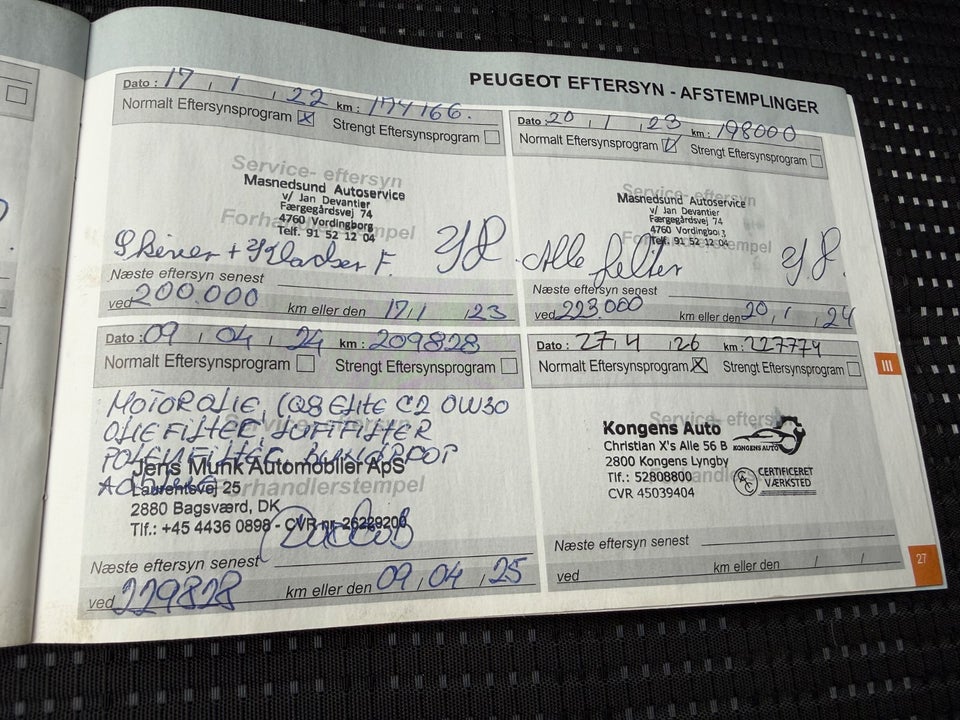 PEUGEOT EFTERSYN - AFSTEMPLINGER
Dato : 17 , 1 , 22 km : 174166.
Normalt Eftersynsprogram ☒ Strengt Eftersynsprogram ☐
Service- eftersyn
Masnedsund Autoservice
v/ Jan Devantier
Færgegårdsvej 74
4760 Vordingborg
Telf. 91 52 12 04
Forhandlerstempel
Skiver + Klodser F.
Næste eftersyn senest
ved 200.000 km eller den 17, 1 , 23
Dato : 20 , 1 , 23 km : 198000
Normalt Eftersynsprogram ☑ Strengt Eftersynsprogram ☐
Service- eftersyn
Masnedsund Autoservice
v/ Jan Devantier
Færgegårdsvej 74
4760 Vordingborg
Telf. 91 52 12 04
Alle filter
Næste eftersyn senest
ved 223.000 km eller den 20, 1 , 24
Dato : 09 , 04 , 24 km : 209828
Normalt Eftersynsprogram ☐ Strengt Eftersynsprogram ☐
MOTOROLIE, (Q8 Elite C2 0W30
OLIEFILTER, LUFTFILTER
Jens Munk Automobiler ApS
Laurentsvej 25
2880 Bagsværd, DK
Tlf.: +45 4436 0898 - CVR nr. 26229200
Forhandlerstempel
Næste eftersyn senest
ved 229828 km eller den 09 , 04 , 25
Dato : 27 , 4 , 26 km : 227774
Normalt Eftersynsprogram ☒ Strengt Eftersynsprogram ☐
Service- eftersyn
Kongens Auto
Christian X's Alle 56 B
2800 Kongens Lyngby
Tlf.: 52808800
CVR 45039404
KONGENS AUTO
CERTIFICERET
VÆRKSTED
Næste eftersyn senest
ved km eller den / /
III
27